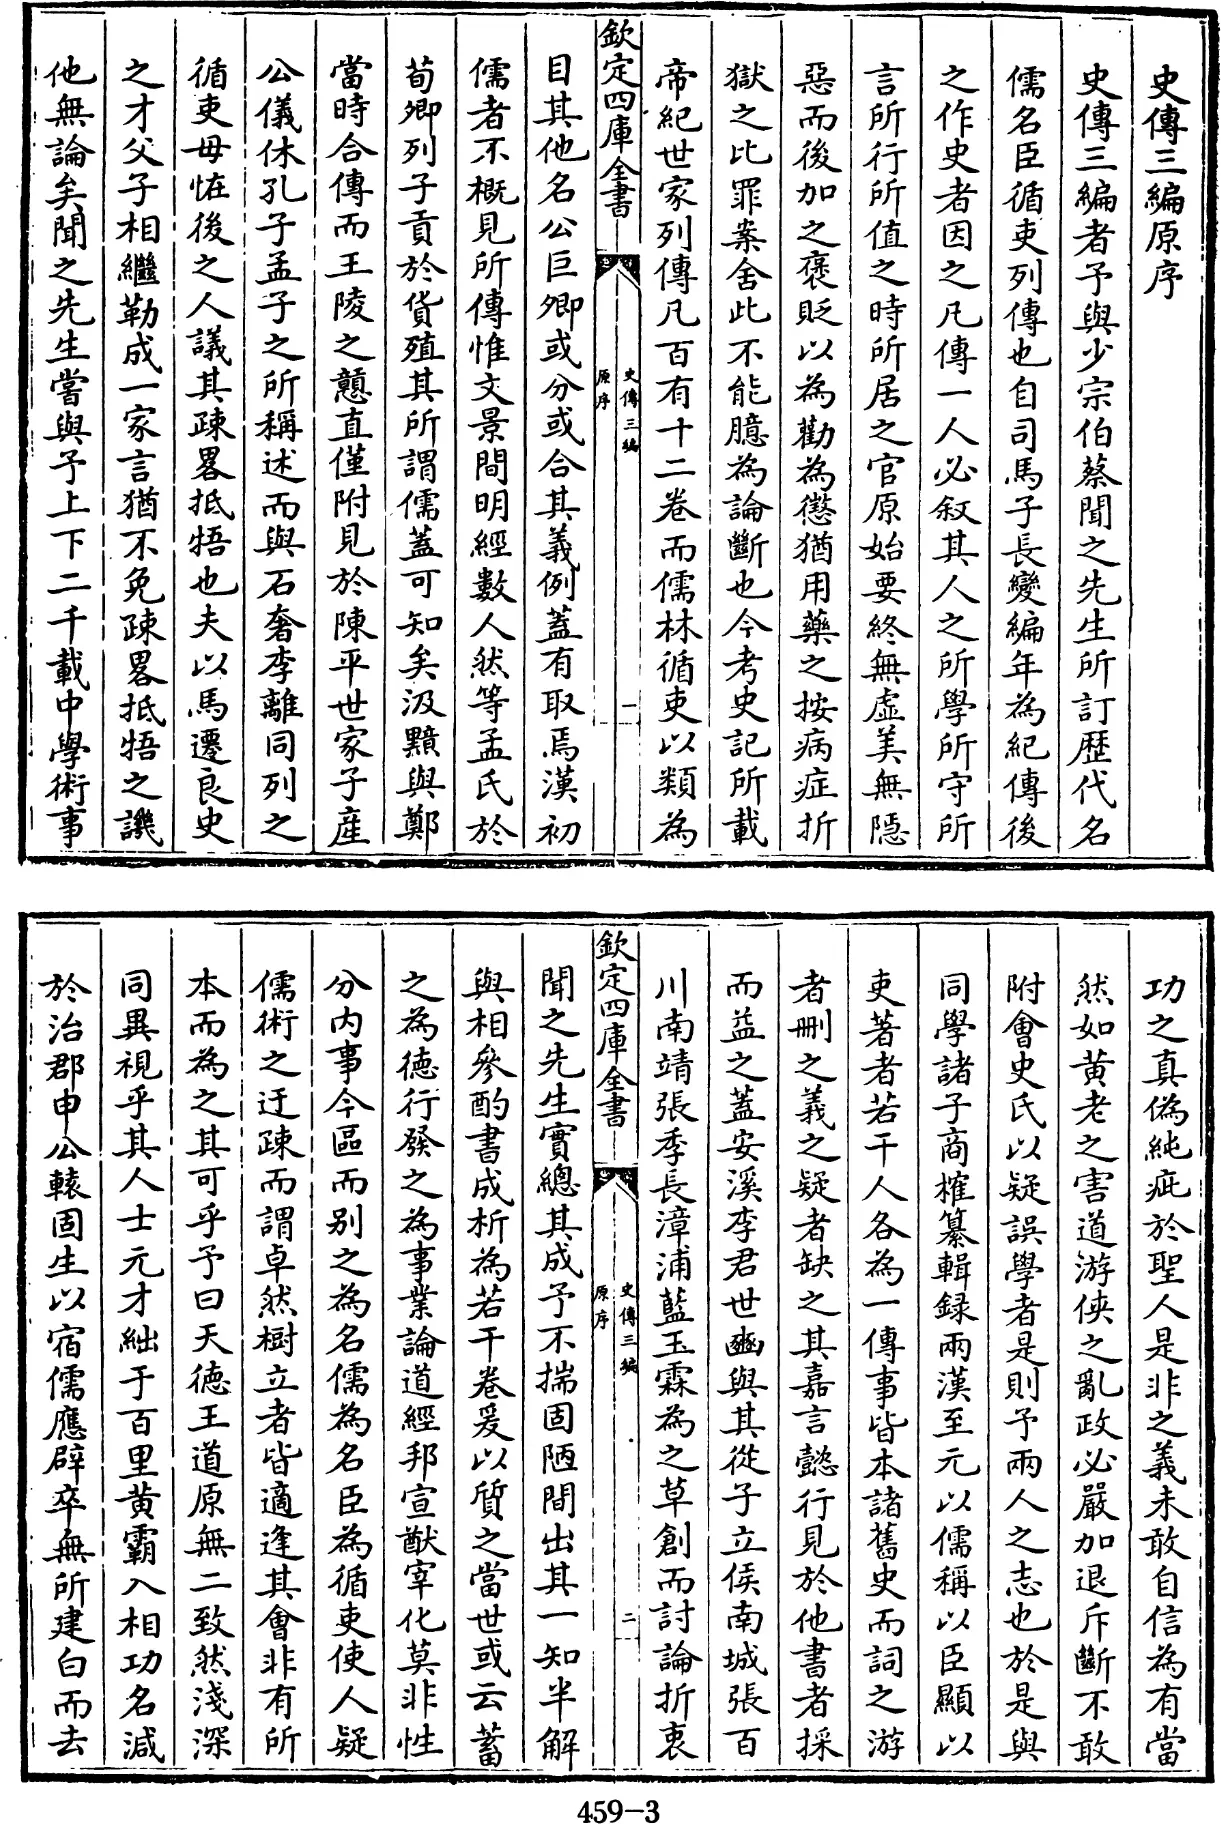 史傳三編原序
史傳三編者予與少宗伯蔡聞之先生所訂歷代名
儒名臣循吏列傳也自司馬子長變編年為紀傳後
之作史者因之凡傳一人必敘其人之所學所守所
言所行所值之時所居之官原始要終無虛美無隱
惡而後加之褒貶以為勸為懲猶用藥之按病症折
獄之比罪案舍此不能臆為論斷也今考史記所載
帝紀世家列傳凡百有十二卷而儒林循吏以類為
欽定四庫全書
史傳三編
原序
一
目其他名公巨卿或分或合其義例蓋有取焉漢初
儒者不概見所傳惟文景間明經數人然等孟氏於
荀卿列子貢於貨殖其所謂儒蓋可知矣汲黯與鄭
當時合傳而王陵之戇直僅附見於陳平世家子產
公儀休孔子孟子之所稱述而與石奢李離同列之
循吏毋怪後之人議其疎畧抵牾也夫以馬遷良史
之才父子相繼勒成一家言猶不免疎畧抵牾之譏
他無論矣聞之先生嘗與予上下二千載中學術事
功之真偽純疵於聖人是非之義未敢自信為有當
然如黃老之害道游俠之亂政必嚴加退斥斷不敢
附會史氏以疑誤學者是則予兩人之志也於是與
同學諸子商榷纂輯録兩漢至元以儒稱以臣顯以
吏著者若干人各為一傳事皆本諸舊史而詞之游
者刪之義之疑者缺之其嘉言懿行見於他書者採
而益之蓋安溪李君世𨓜與其從子立侯南城張百
川南靖張季長漳浦藍玉霖為之草創而討論折衷
欽定四庫全書
史傳三編
原序
二
聞之先生實總其成予不揣固陋間出其一知半解
與相參酌書成析為若干卷爰以質之當世或云蓄
之為德行發之為事業論道經邦宣猷宰化莫非性
分内事今區而别之為名儒為名臣為循吏使人疑
儒術之迂疎而謂卓然樹立者皆適逢其會非有所
本而為之其可乎予曰天德王道原無二致然淺深
同異視乎其人士元才絀于百里黃霸入相功名減
於治郡申公轅固生以宿儒應辟卒無所建白而去
459-3